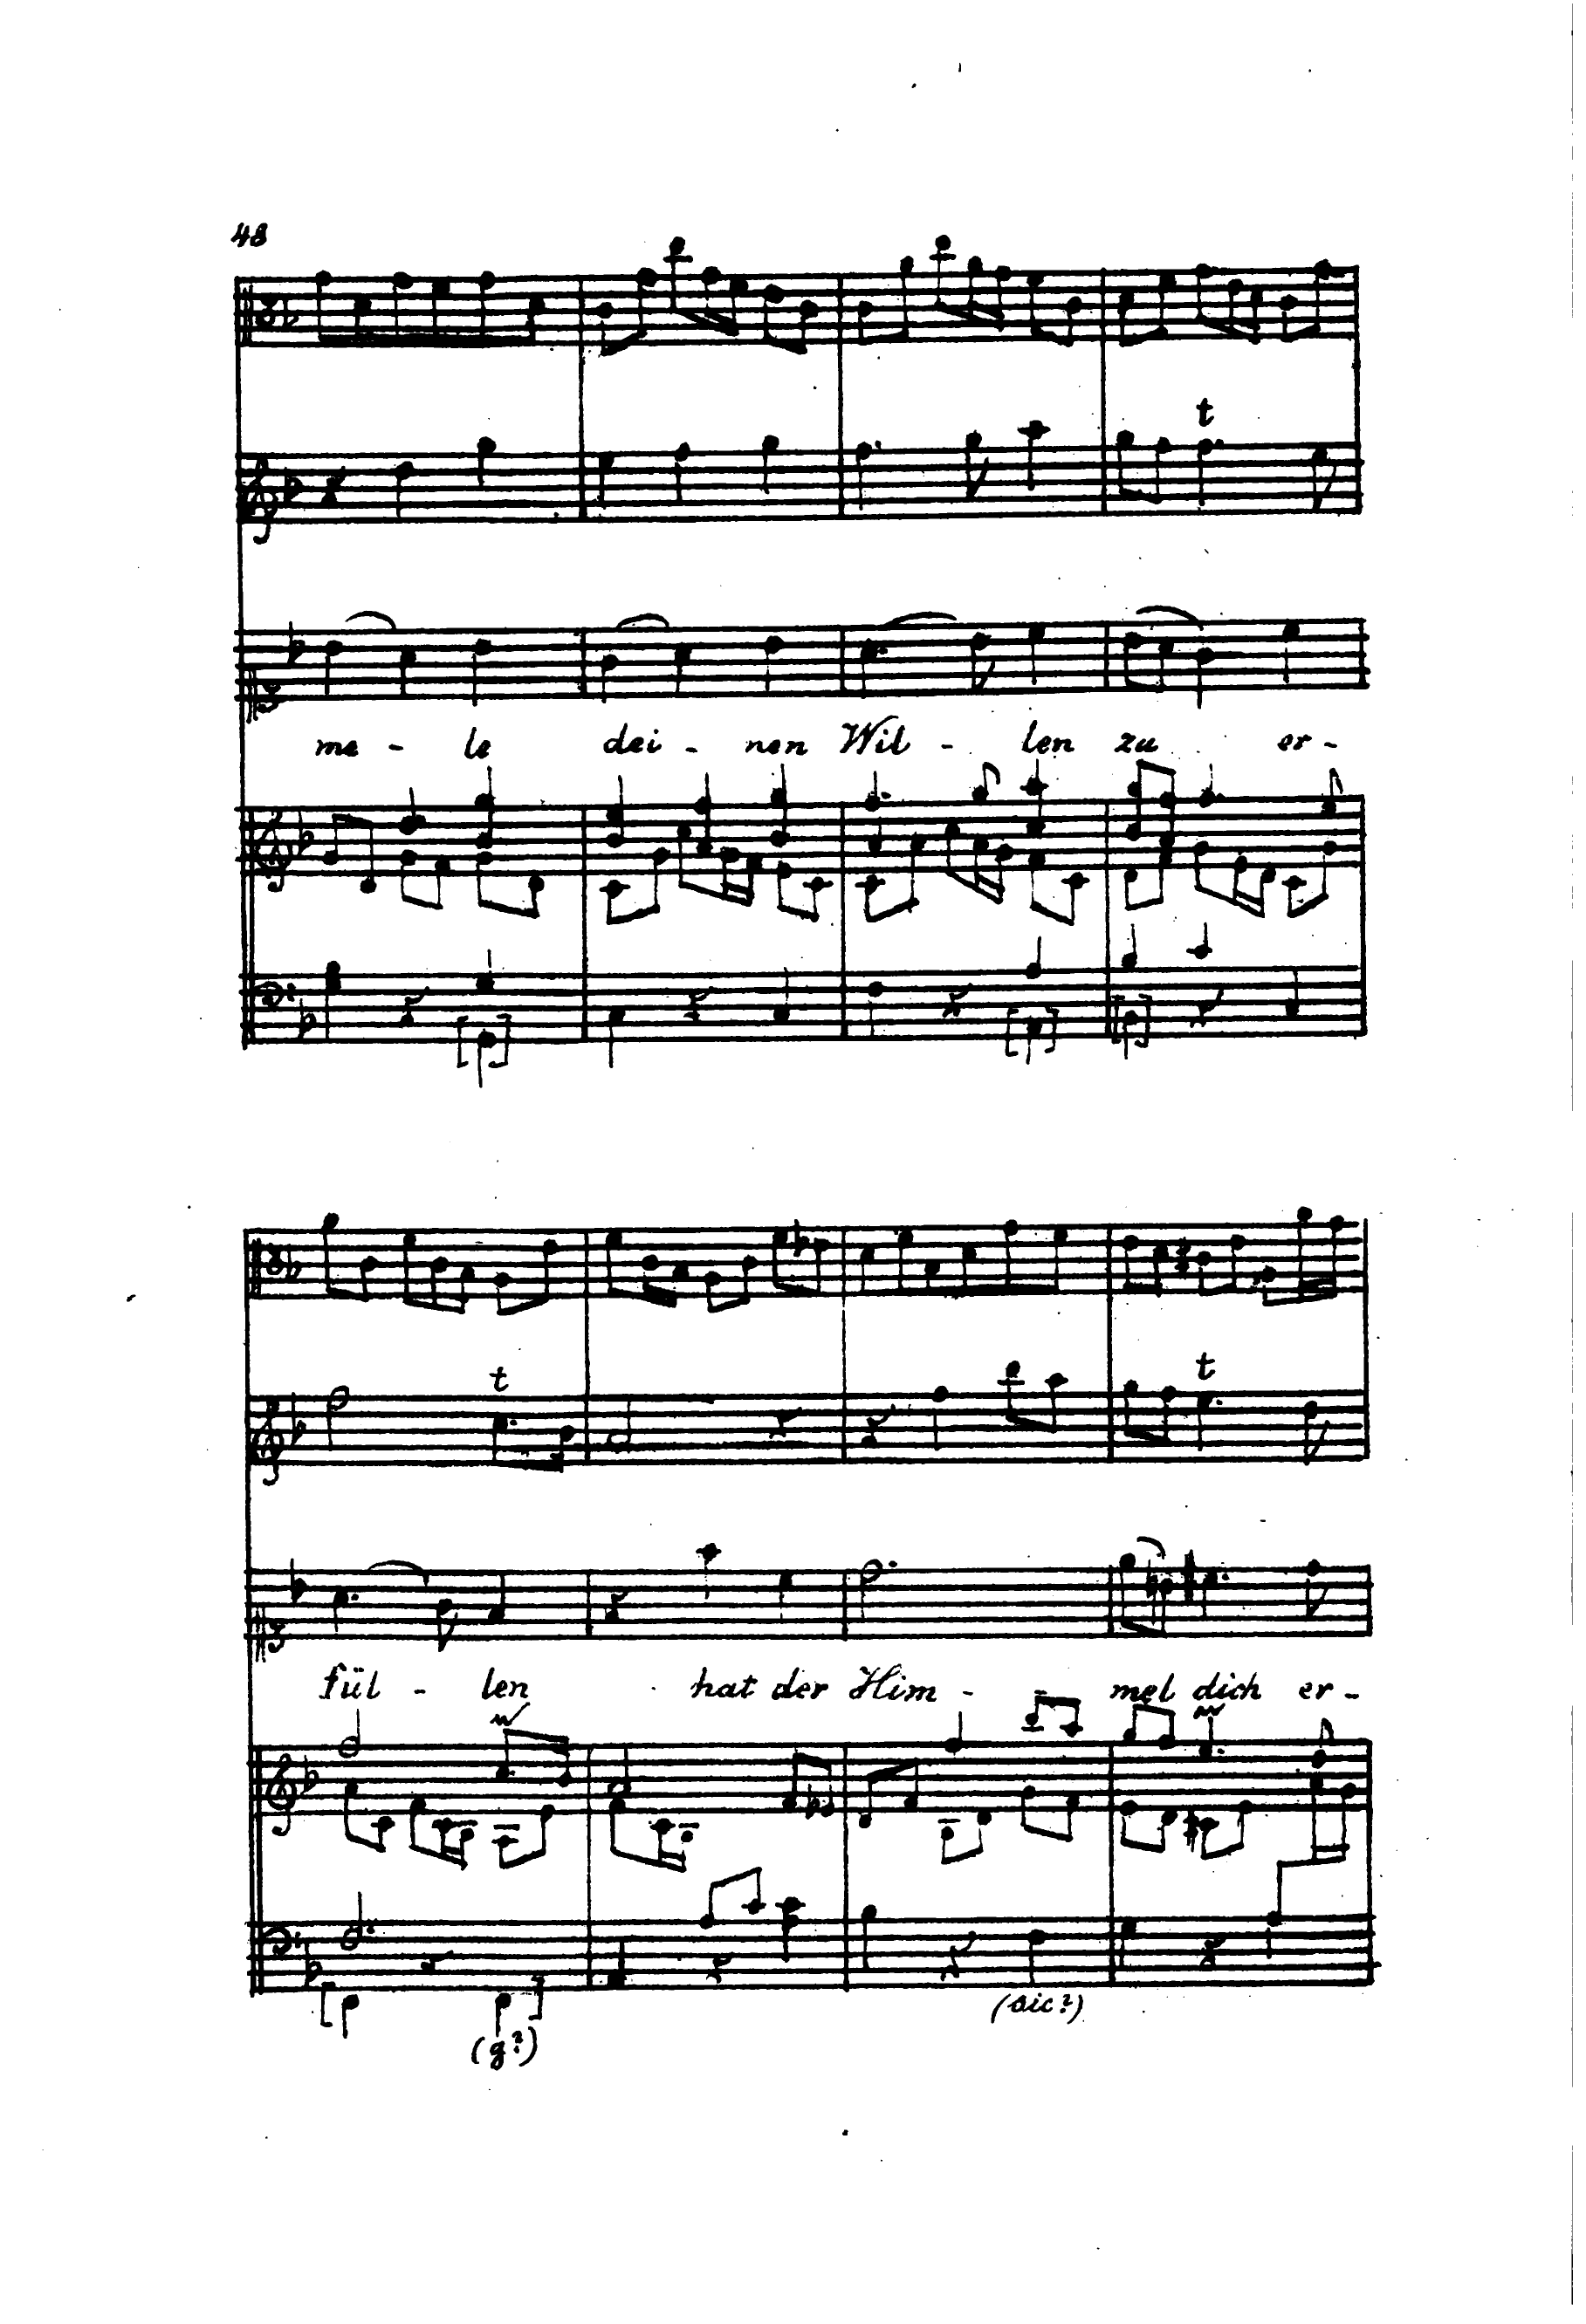 48
t
me - le dei - nen Wil - len zu er -
t
t
fül - len hat der Him - mel dich er -
(sic?)
(g?)